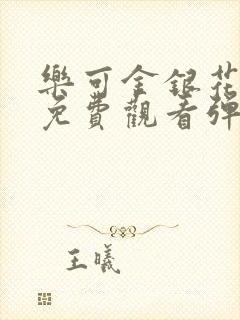 樂可金銀花
免費觀看彈
王曦